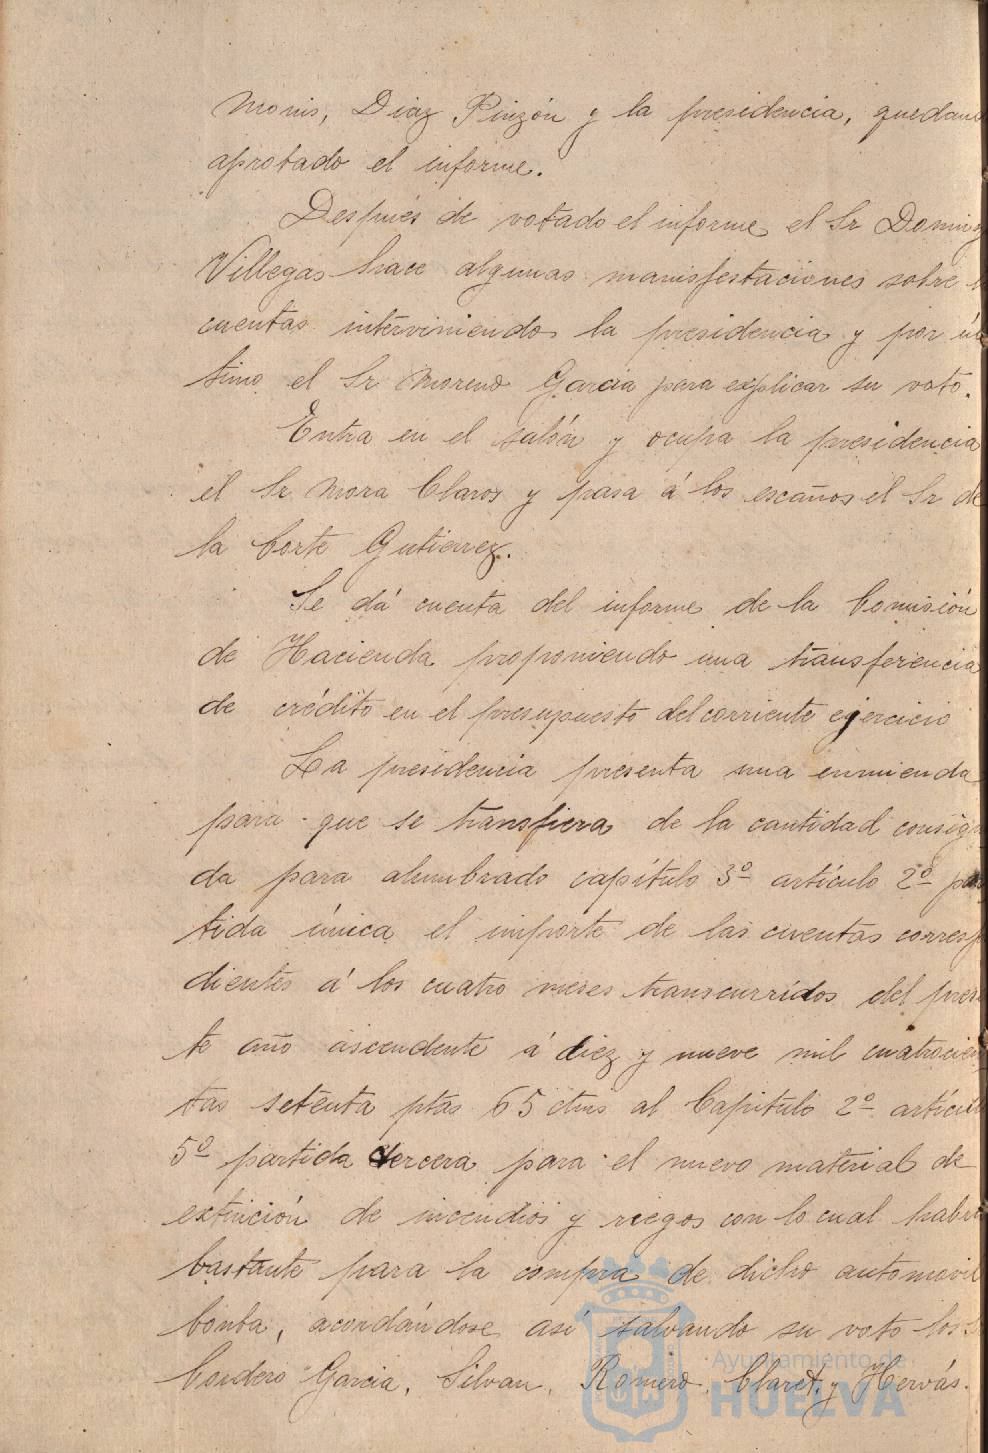 Monis, Diaz Pinzón y la presidencia, quedand
aprobado el informe.
Después de votado el informe el Sr Doming
Villegas hace algunas manisfestaciones sobre
cuentas interviniendo la presidencia y por úl
timo el Sr Moreno Garcia para explicar su voto.
Entra en el salón y ocupa la presidencia
el Sr Mora Claros y pasa á los escaños el Sr de
la Corte Gutierrez.
Se dá cuenta del informe de la Comisión
de Hacienda proponiendo una transferencia
de crédito en el presupuesto del corriente ejercicio
La presidencia presenta una enmienda
para que se transfiera de la cantidad consign
da para alumbrado capítulo 3º artículo 2º par
tida única el importe de las cuentas corresp
dientes á los cuatro meses transcurridos del prese
te año ascendente á diez y nueve mil cuatrocien
tas setenta ptas 65 ctms al Capítulo 2º artícul
5º partida tercera para el nuevo material de
extinción de incendios y riegos con lo cual habrá
bastante para la compra de dicho automovil
bomba, acordándose así salvando su voto los S
Cordero Garcia, Silvan, Romero, Claret, y Hervás.
Ayuntamiento de
HUELVA